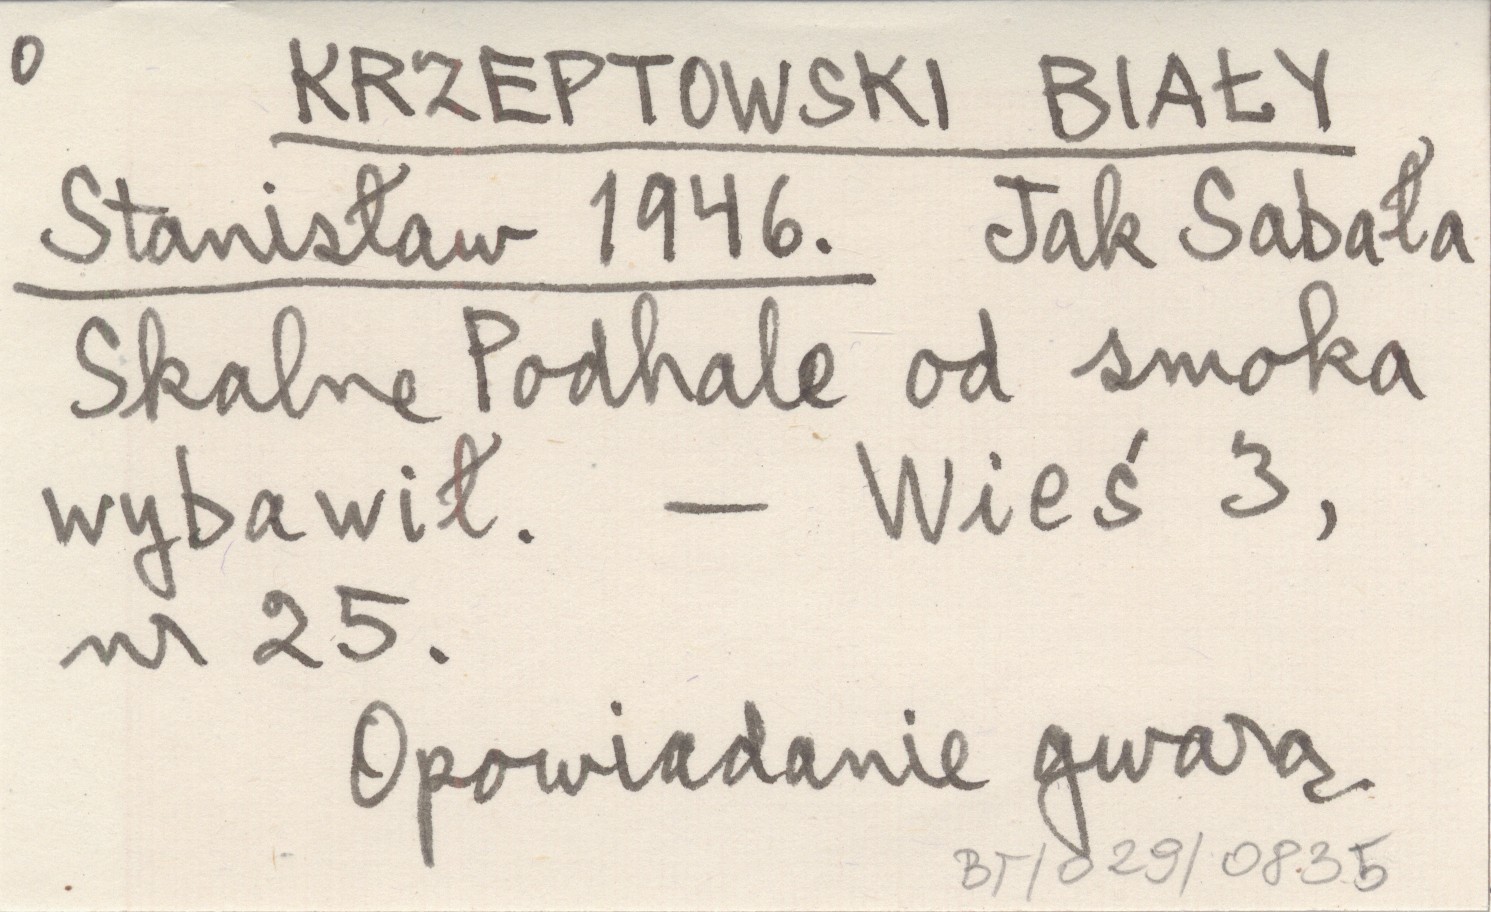 0 KRZEPTOWSKI BIAŁY
Stanisław 1946. Jak Sabała
Skalne Podhale od smoka
wybawił. — Wieś 3,
nr 25.
Opowiadanie gwarą
BT/029/0835